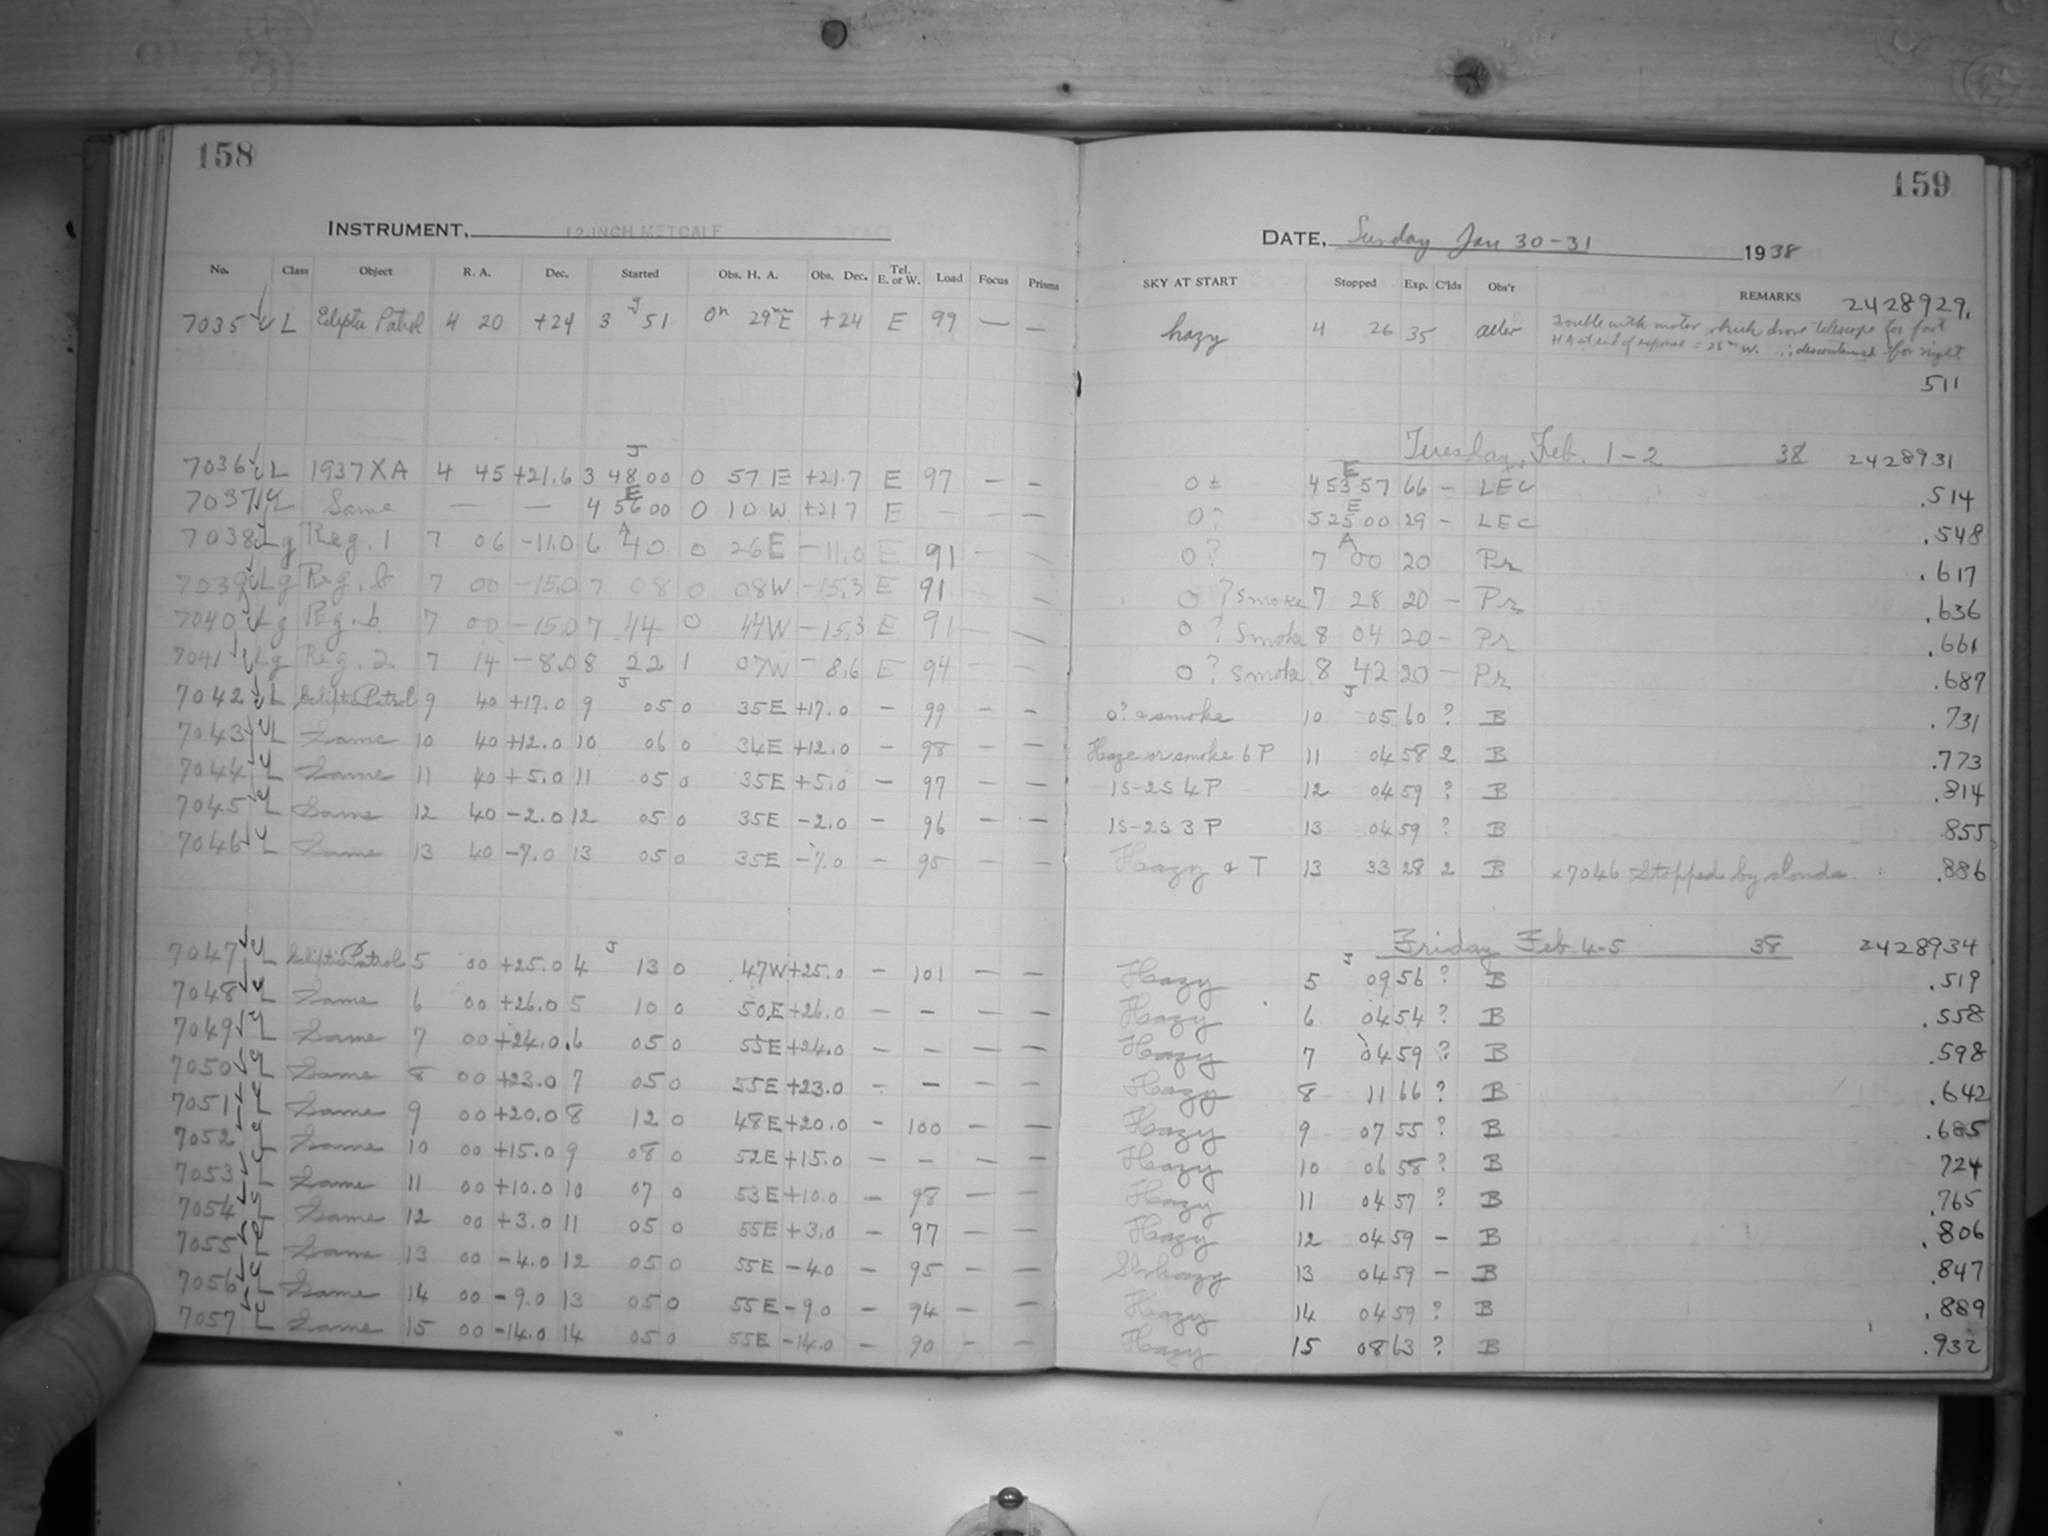 158
INSTRUMENT, 12-INCH METCALF
No. Class Object R. A. Dec. Started Obs. H. A. Obs. Dec. Tel. E. or W. Load Focus Prisms
7035 L Ecliptic Patrol 4 20 +24 3 J 51 0h 29m E +24 E 99 — —
7036 L 1937 XA 4 45 +21.6 3 J 48 00 0 57 E +21.7 E 97 — —
7037 L Same — — 4 E 56 00 0 10 W +21.7 E — — —
7038 Lg Reg. 1 7 06 -11.0 6 A 40 0 26 E -11.0 E 91 — —
7039 Lg Reg. 6 7 00 -15.0 7 08 0 08 W -15.3 E 91 — —
7040 Lg Reg. 6 7 00 -15.0 7 44 0 44 W -15.3 E 91 — —
7041 Lg Reg. 2 7 14 -8.0 8 22 1 07 W -8.6 E 94 — —
7042 L Ecliptic Patrol 9 40 +17.0 9 J 05 0 35 E +17.0 — 99 — —
7043 L Same 10 40 +12.0 10 06 0 34 E +12.0 — 98 — —
7044 L Same 11 40 +5.0 11 05 0 35 E +5.0 — 97 — —
7045 L Same 12 40 -2.0 12 05 0 35 E -2.0 — 96 — —
7046 L Same 13 40 -7.0 13 05 0 35 E -7.0 — 95 — —
7047 L Ecliptic Patrol 5 00 +25.0 4 J 13 0 47 W +25.0 — 101 — —
7048 L Same 6 00 +26.0 5 10 0 50 E +26.0 — — — —
7049 L Same 7 00 +24.0 6 05 0 55 E +24.0 — — — —
7050 L Same 8 00 +23.0 7 05 0 55 E +23.0 — — — —
7051 L Same 9 00 +20.0 8 12 0 48 E +20.0 — 100 — —
7052 L Same 10 00 +15.0 9 08 0 52 E +15.0 — — — —
7053 L Same 11 00 +10.0 10 07 0 53 E +10.0 — 98 — —
7054 L Same 12 00 +3.0 11 05 0 55 E +3.0 — 97 — —
7055 L Same 13 00 -4.0 12 05 0 55 E -4.0 — 95 — —
7056 L Same 14 00 -9.0 13 05 0 55 E -9.0 — 94 — —
7057 L Same 15 00 -14.0 14 05 0 55 E -14.0 — 90 — —
159
DATE, Sunday Jan 30-31 1938
SKY AT START Stopped Exp. C'lds Obs'r REMARKS 2428929.
hazy 4 26 35 Trouble with motor which drove telescope too fast
HA at end of exposure = 25m W. ∴ discontinued for night
511
Tuesday, Feb. 1-2 38 2428931
0 ± 4 E 53 57 66 — LEC .514
0? 5 E 25 00 29 — LEC .548
0? 7 A 00 20 Pr .617
0? smoke 7 28 20 — Pr .636
0? Smoke 8 04 20 — Pr .661
0? smoke 8 42 20 — Pr .687
0? & smoke 10 J 05 60 ? B .731
Haze or smoke 6 P 11 04 58 2 B .773
1S-2S 4 P 12 04 59 ? B .814
1S-2S 3 P 13 04 59 ? B .855
Hazy & T 13 33 28 2 B x7046 Stopped by clouds. .886
Friday Feb. 4-5 38 2428934
Hazy 5 J 09 56 ? B .519
Hazy 6 04 54 ? B .558
Hazy 7 04 59 ? B .598
Hazy 8 11 66 ? B .642
Hazy 9 07 55 ? B .685
Hazy 10 06 58 ? B 724
Hazy 11 04 57 ? B .765
Hazy 12 04 59 — B .806
Sl. hazy 13 04 59 — B .847
Hazy 14 04 59 ? B .889
Hazy 15 08 63 ? B .932